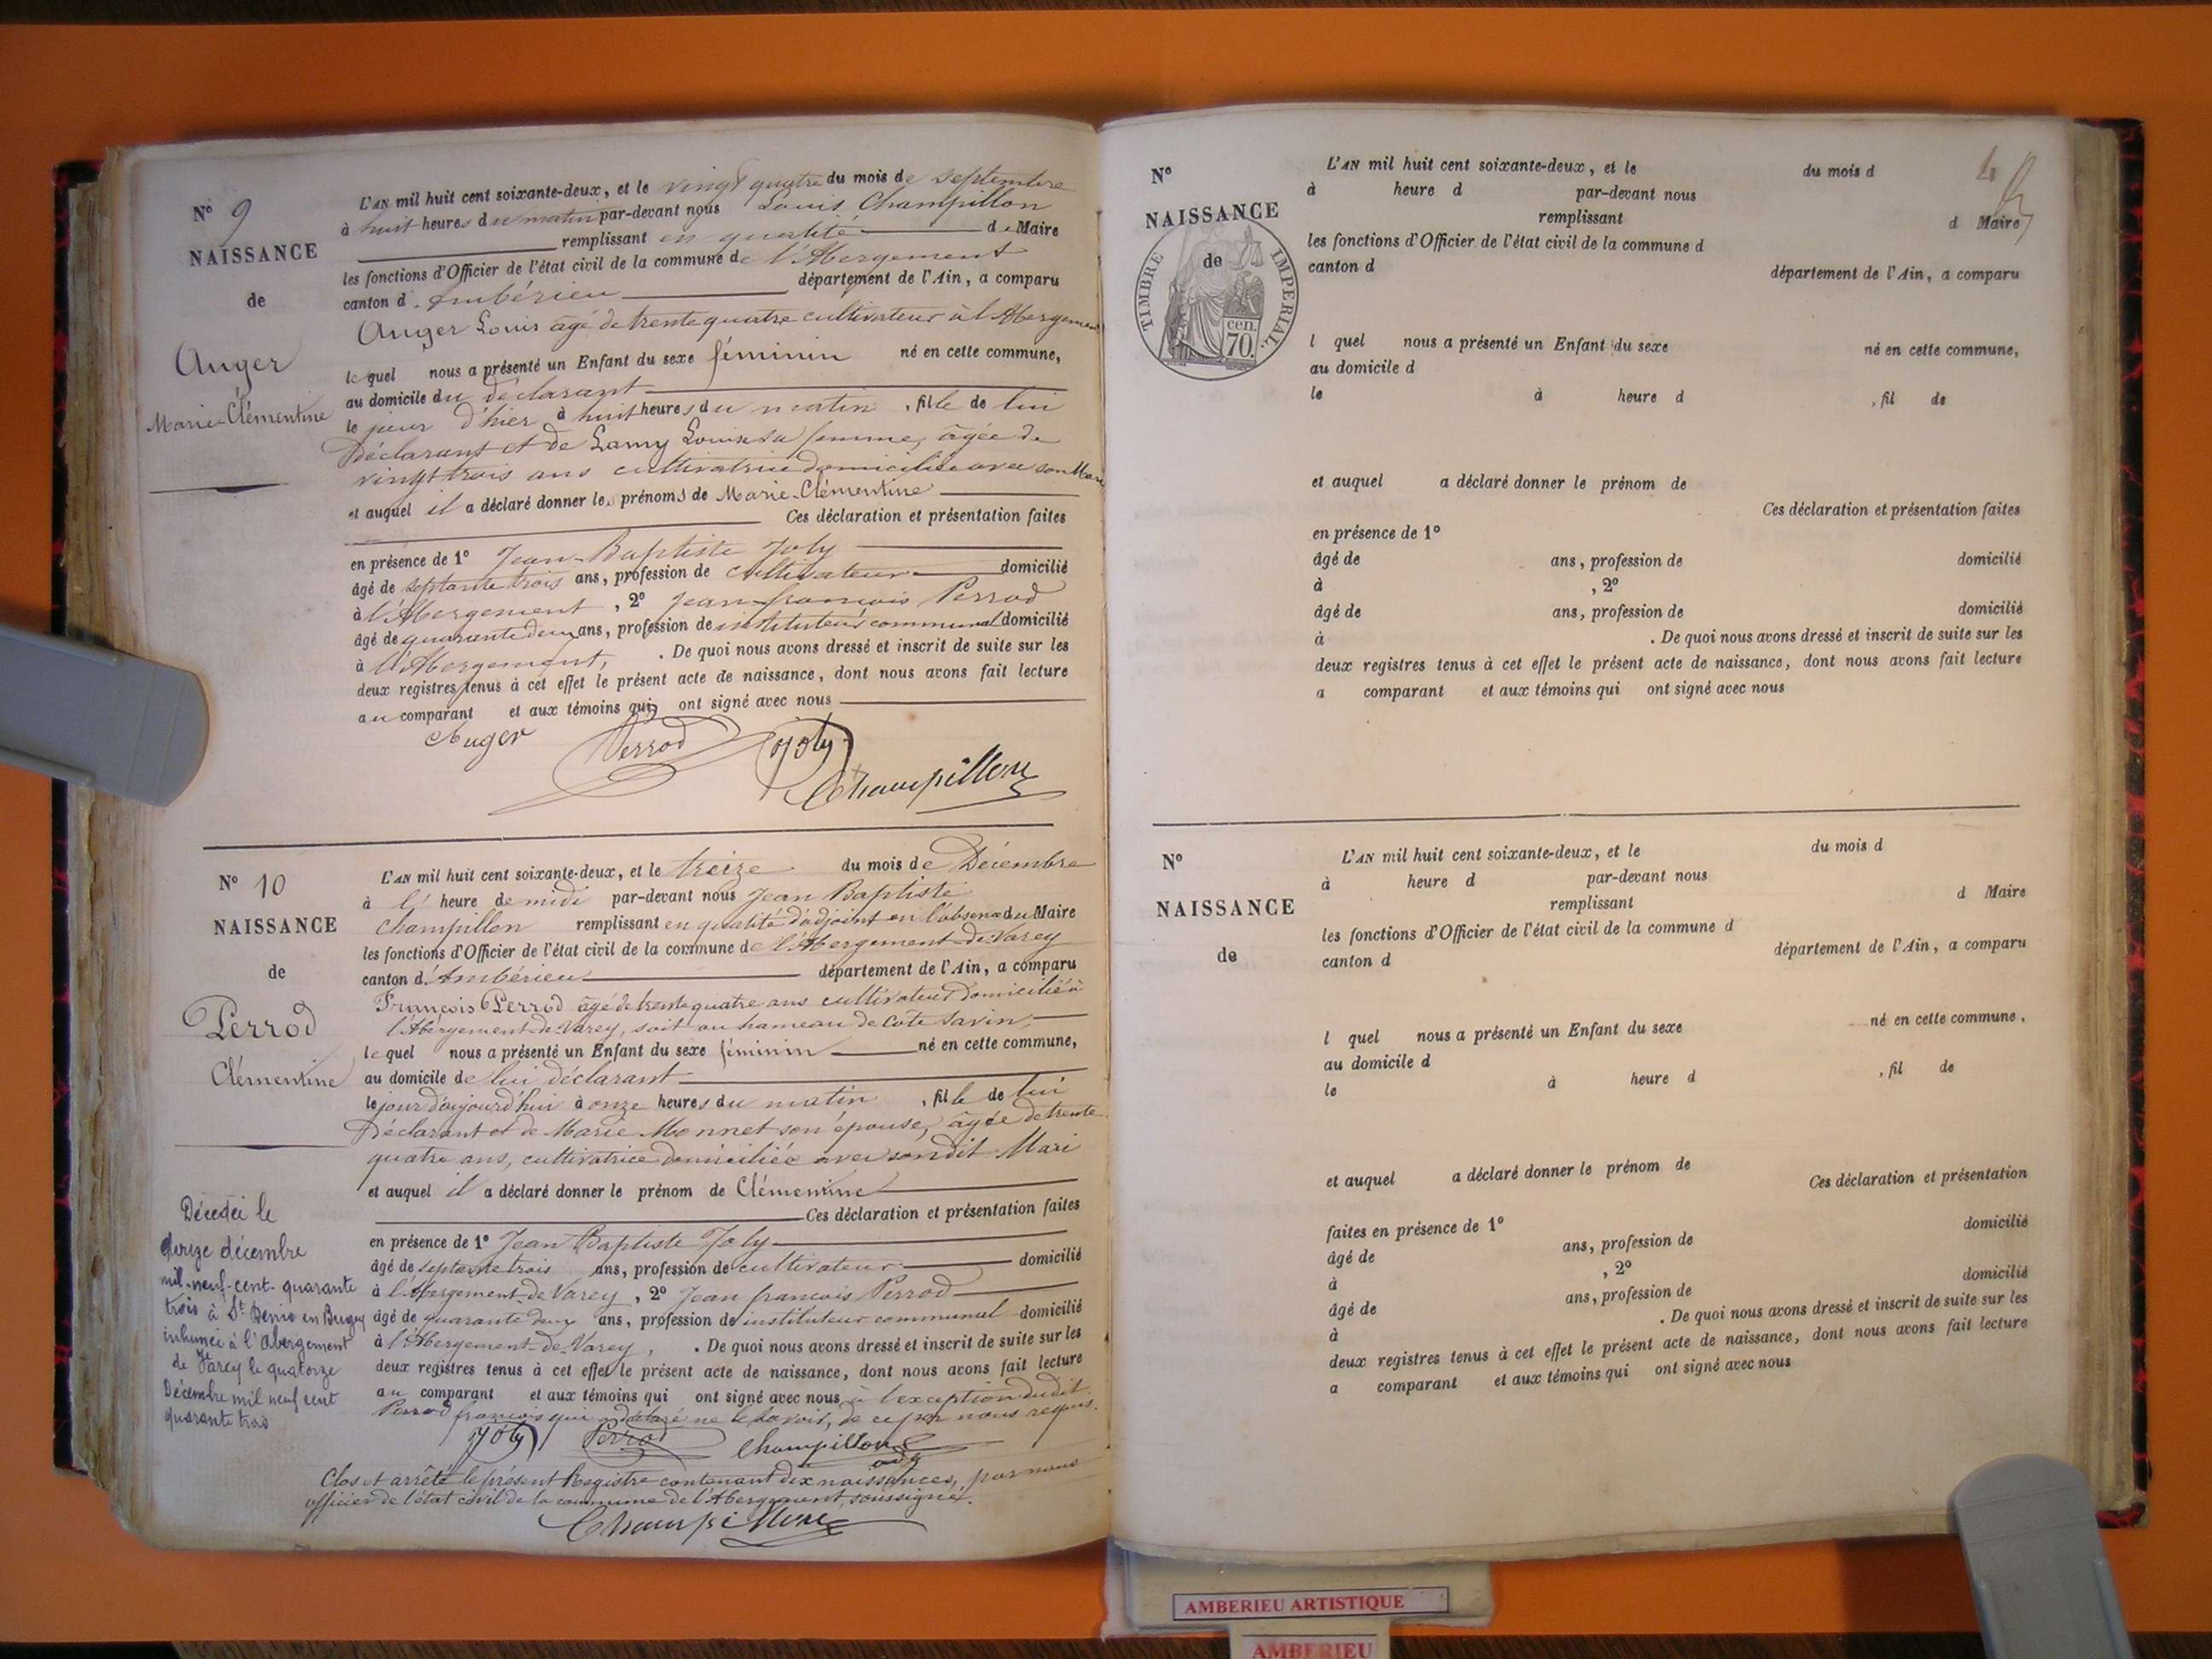 Nº 9
NAISSANCE
de
Auger
Marie-Clémentine
L'AN mil huit cent soixante-deux, et le vingt quatre du mois de septembre
à huit heures du matin par-devant nous Louis Champillon
remplissant en qualité de Maire
les fonctions d'Officier de l'état civil de la commune de l'Abergement
canton d'Ambérieu département de l'Ain, a comparu
Auger Louis âgé de trente quatre cultivateur à l'Abergement
lequel nous a présenté un Enfant du sexe féminin né en cette commune,
au domicile du déclarant
le jour d'hier à huit heures du matin, fille de lui
Déclarant et de Lamy Louise sa femme, âgée de
vingt trois ans cultivatrice domiciliée avec son Mari
et auquel il a déclaré donner les prénoms de Marie-Clémentine
Ces déclaration et présentation faites
en présence de 1º Jean-Baptiste Joly
âgé de septante trois ans, profession de cultivateur domicilié
à l'Abergement, 2º Jean-françois Perrod
âgé de quarante deux ans, profession de instituteur communal domicilié
à l'Abergement, . De quoi nous avons dressé et inscrit de suite sur les
deux registres tenus à cet effet le présent acte de naissance, dont nous avons fait lecture
au comparant et aux témoins qui ont signé avec nous
Auger Perrod Joly
Champillon
Nº 10
NAISSANCE
de
Perrod
Clémentine
L'AN mil huit cent soixante-deux, et le treize du mois de Décembre
à l' heure de midi par-devant nous Jean Baptiste
Champillon remplissant en qualité d'adjoint en l'absence du Maire
les fonctions d'Officier de l'état civil de la commune de l'Abergement-de-Varey
canton d'Ambérieu département de l'Ain, a comparu
François Perrod âgé de trente quatre ans cultivateur domicilié à
l'Abergement-de-Varey, soit au hameau de Cote Savin,
lequel nous a présenté un Enfant du sexe féminin né en cette commune,
au domicile de lui déclarant
le jour d'aujourd'hui à onze heures du matin, fille de lui
Déclarant et de Marie Monnet son épouse, âgée de trente
quatre ans, cultivatrice domiciliée avec son dit Mari
et auquel il a déclaré donner le prénom de Clémentine
Ces déclaration et présentation faites
en présence de 1º Jean Baptiste Joly
âgé de septante trois ans, profession de cultivateur domicilié
à l'Abergement-de-Varey, 2º Jean francois Perrod
âgé de quarante deux ans, profession de instituteur communal domicilié
à l'Abergement-de-Varey, . De quoi nous avons dressé et inscrit de suite sur les
deux registres tenus à cet effet le présent acte de naissance, dont nous avons fait lecture
au comparant et aux témoins qui ont signé avec nous à l'exception dudit
Perrod françois qui a déclaré ne le savoir, de ce par nous requis.
Joly Perrod Champillon
adj
Clos et arrêté le présent Registre contenant dix naissances, par nous
officier de l'état civil de la commune de l'Abergement, soussigné.
Champillon
Décédée le
décembre
mil-neuf-cent-quarante
trois à St Denis en Bugey
inhumée à l'Abergement
de Varey le quatorze
Décembre mil neuf cent
quarante trois
4
Nº
NAISSANCE
de
TIMBRE IMPERIAL
cen.
70.
L'AN mil huit cent soixante-deux, et le du mois d
à heure d par-devant nous
remplissant d Maire
les fonctions d'Officier de l'état civil de la commune d
canton d département de l'Ain, a comparu
l quel nous a présenté un Enfant du sexe né en cette commune,
au domicile d
le à heure d , fil de
et auquel a déclaré donner le prénom de
Ces déclaration et présentation faites
en présence de 1º
âgé de ans, profession de domicilié
à , 2º
âgé de ans, profession de domicilié
à . De quoi nous avons dressé et inscrit de suite sur les
deux registres tenus à cet effet le présent acte de naissance, dont nous avons fait lecture
a comparant et aux témoins qui ont signé avec nous
Nº
NAISSANCE
de
L'AN mil huit cent soixante-deux, et le du mois d
à heure d par-devant nous
remplissant d Maire
les fonctions d'Officier de l'état civil de la commune d
canton d département de l'Ain, a comparu
l quel nous a présenté un Enfant du sexe né en cette commune,
au domicile d
le à heure d , fil de
et auquel a déclaré donner le prénom de
Ces déclaration et présentation
faites en présence de 1º domicilié
âgé de ans, profession de
à , 2º
âgé de ans, profession de domicilié
à . De quoi nous avons dressé et inscrit de suite sur les
deux registres tenus à cet effet le présent acte de naissance, dont nous avons fait lecture
a comparant et aux témoins qui ont signé avec nous
AMBERIEU ARTISTIQUE
AMBERIEU